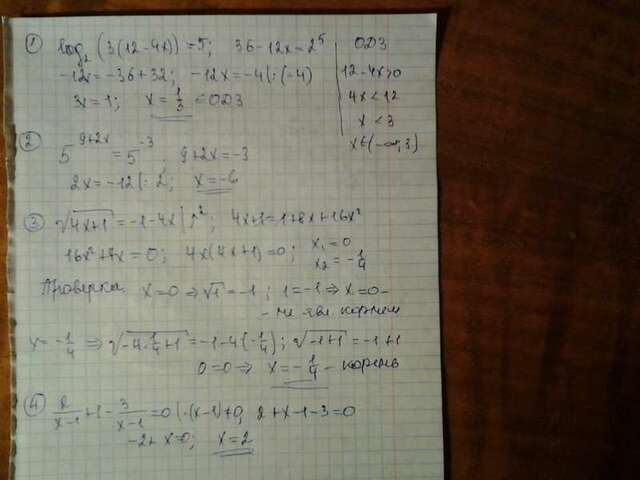 ① log₂ (3(12-4x)) = 5; 36-12x=2⁵
-12x=-36+32; -12x=-4 |:(-4)
3x=1; x=1/3 ∈ ОДЗ
ОДЗ
12-4x>0
4x<12
x<3
x∈(-∞;3)
② 5^(9+2x) = 5^(-3); 9+2x=-3
2x=-12 |:2; x=-6
③ √(4x+1) = -1-4x |²; 4x+1=1+8x+16x²
16x²+4x=0; 4x(4x+1)=0; x₁=0
x₂=-1/4
Проверка x=0 ⇒ √1=-1; 1=-1 ⇒ x=0 -
- не явл. корнем
x=-1/4 ⇒ √(-4·1/4+1) = -1-4(-1/4); √(-1+1) = -1+1
0=0 ⇒ x=-1/4 - корень
④ 2/(x-1) + 1 - 3/(x-1) = 0 |·(x-1)≠0; 2+x-1-3=0
-2+x=0; x=2